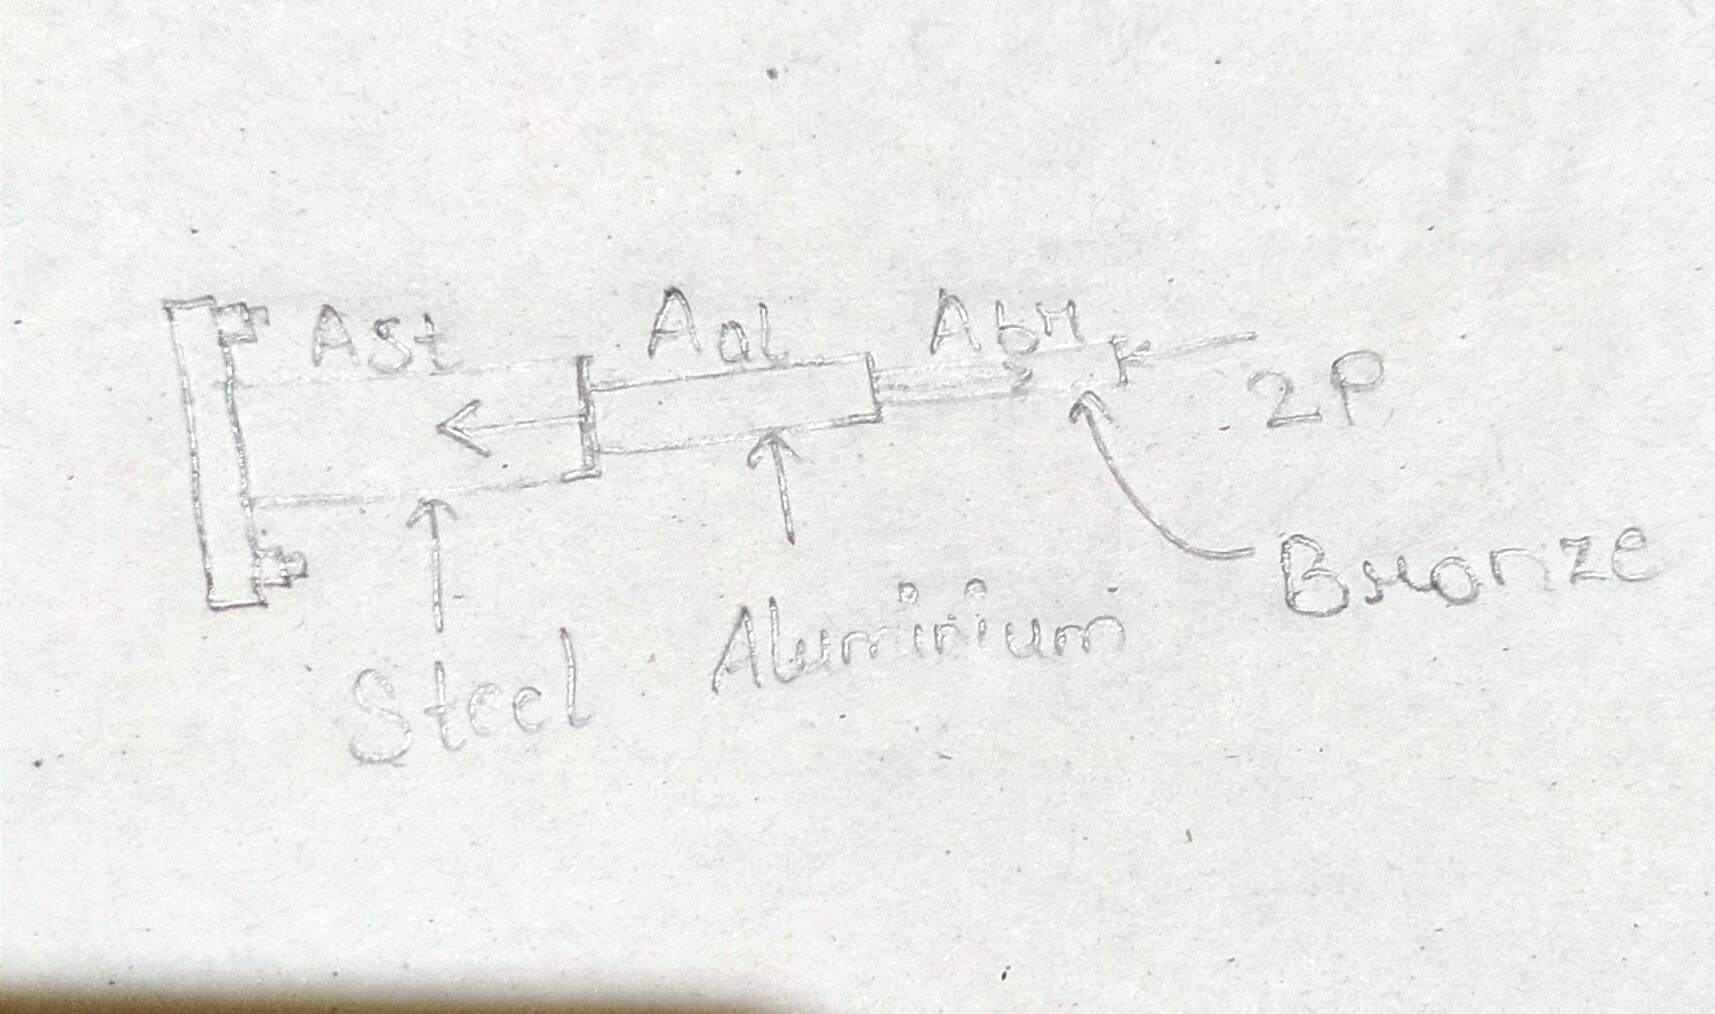 Ast Aal Abr
2P
Bronze
Aluminium
Steel